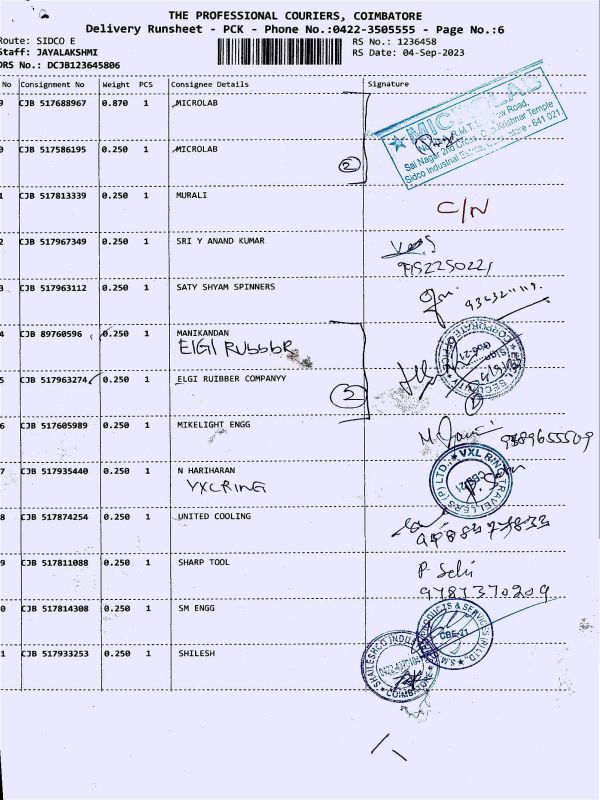 THE PROFESSIONAL COURIERS, COIMBATORE
Delivery Runsheet - PCK - Phone No.:0422-3505555 - Page No.:6
Route: SIDCO E
RS No.: 1236458
Staff: JAYALAKSHMI
RS Date: 04-Sep-2023
DRS No.: DCJB123645806
No Consignment No Weight PCS Consignee Details Signature
9 CJB 517688967 0.870 1 MICROLAB
MICROLAB
Sai Nagar 2nd Cross, Krishnar Temple
Sidco Industrial Estate, Coimbatore - 641 021
0 CJB 517586195 0.250 1 MICROLAB
2
1 CJB 517813339 0.250 1 MURALI C/N
2 CJB 517967349 0.250 1 SRI Y ANAND KUMAR
9952250221
3 CJB 517963112 0.250 1 SATY SHYAM SPINNERS
4 CJB 89760596 0.250 1 MANIKANDAN
ElGI RUbbbR
5 CJB 517963274 0.250 1 ELGI RUIBBER COMPANYY
6 CJB 517605989 0.250 1 MIKELIGHT ENGG
9489655509
7 CJB 517935440 0.250 1 N HARIHARAN
VXL RING TRAVELLERS (P) LTD.
VXLRING
8 CJB 517874254 0.250 1 UNITED COOLING
9 CJB 517811088 0.250 1 SHARP TOOL
P. Selvi
9787370209
0 CJB 517814308 0.250 1 SM ENGG
PRODUCTS & SERVICES (P) LTD.
CBE-21
S.M.
1 CJB 517933253 0.250 1 SHILESH
SHAILESHCO INDUSTRIES
COIMBATORE